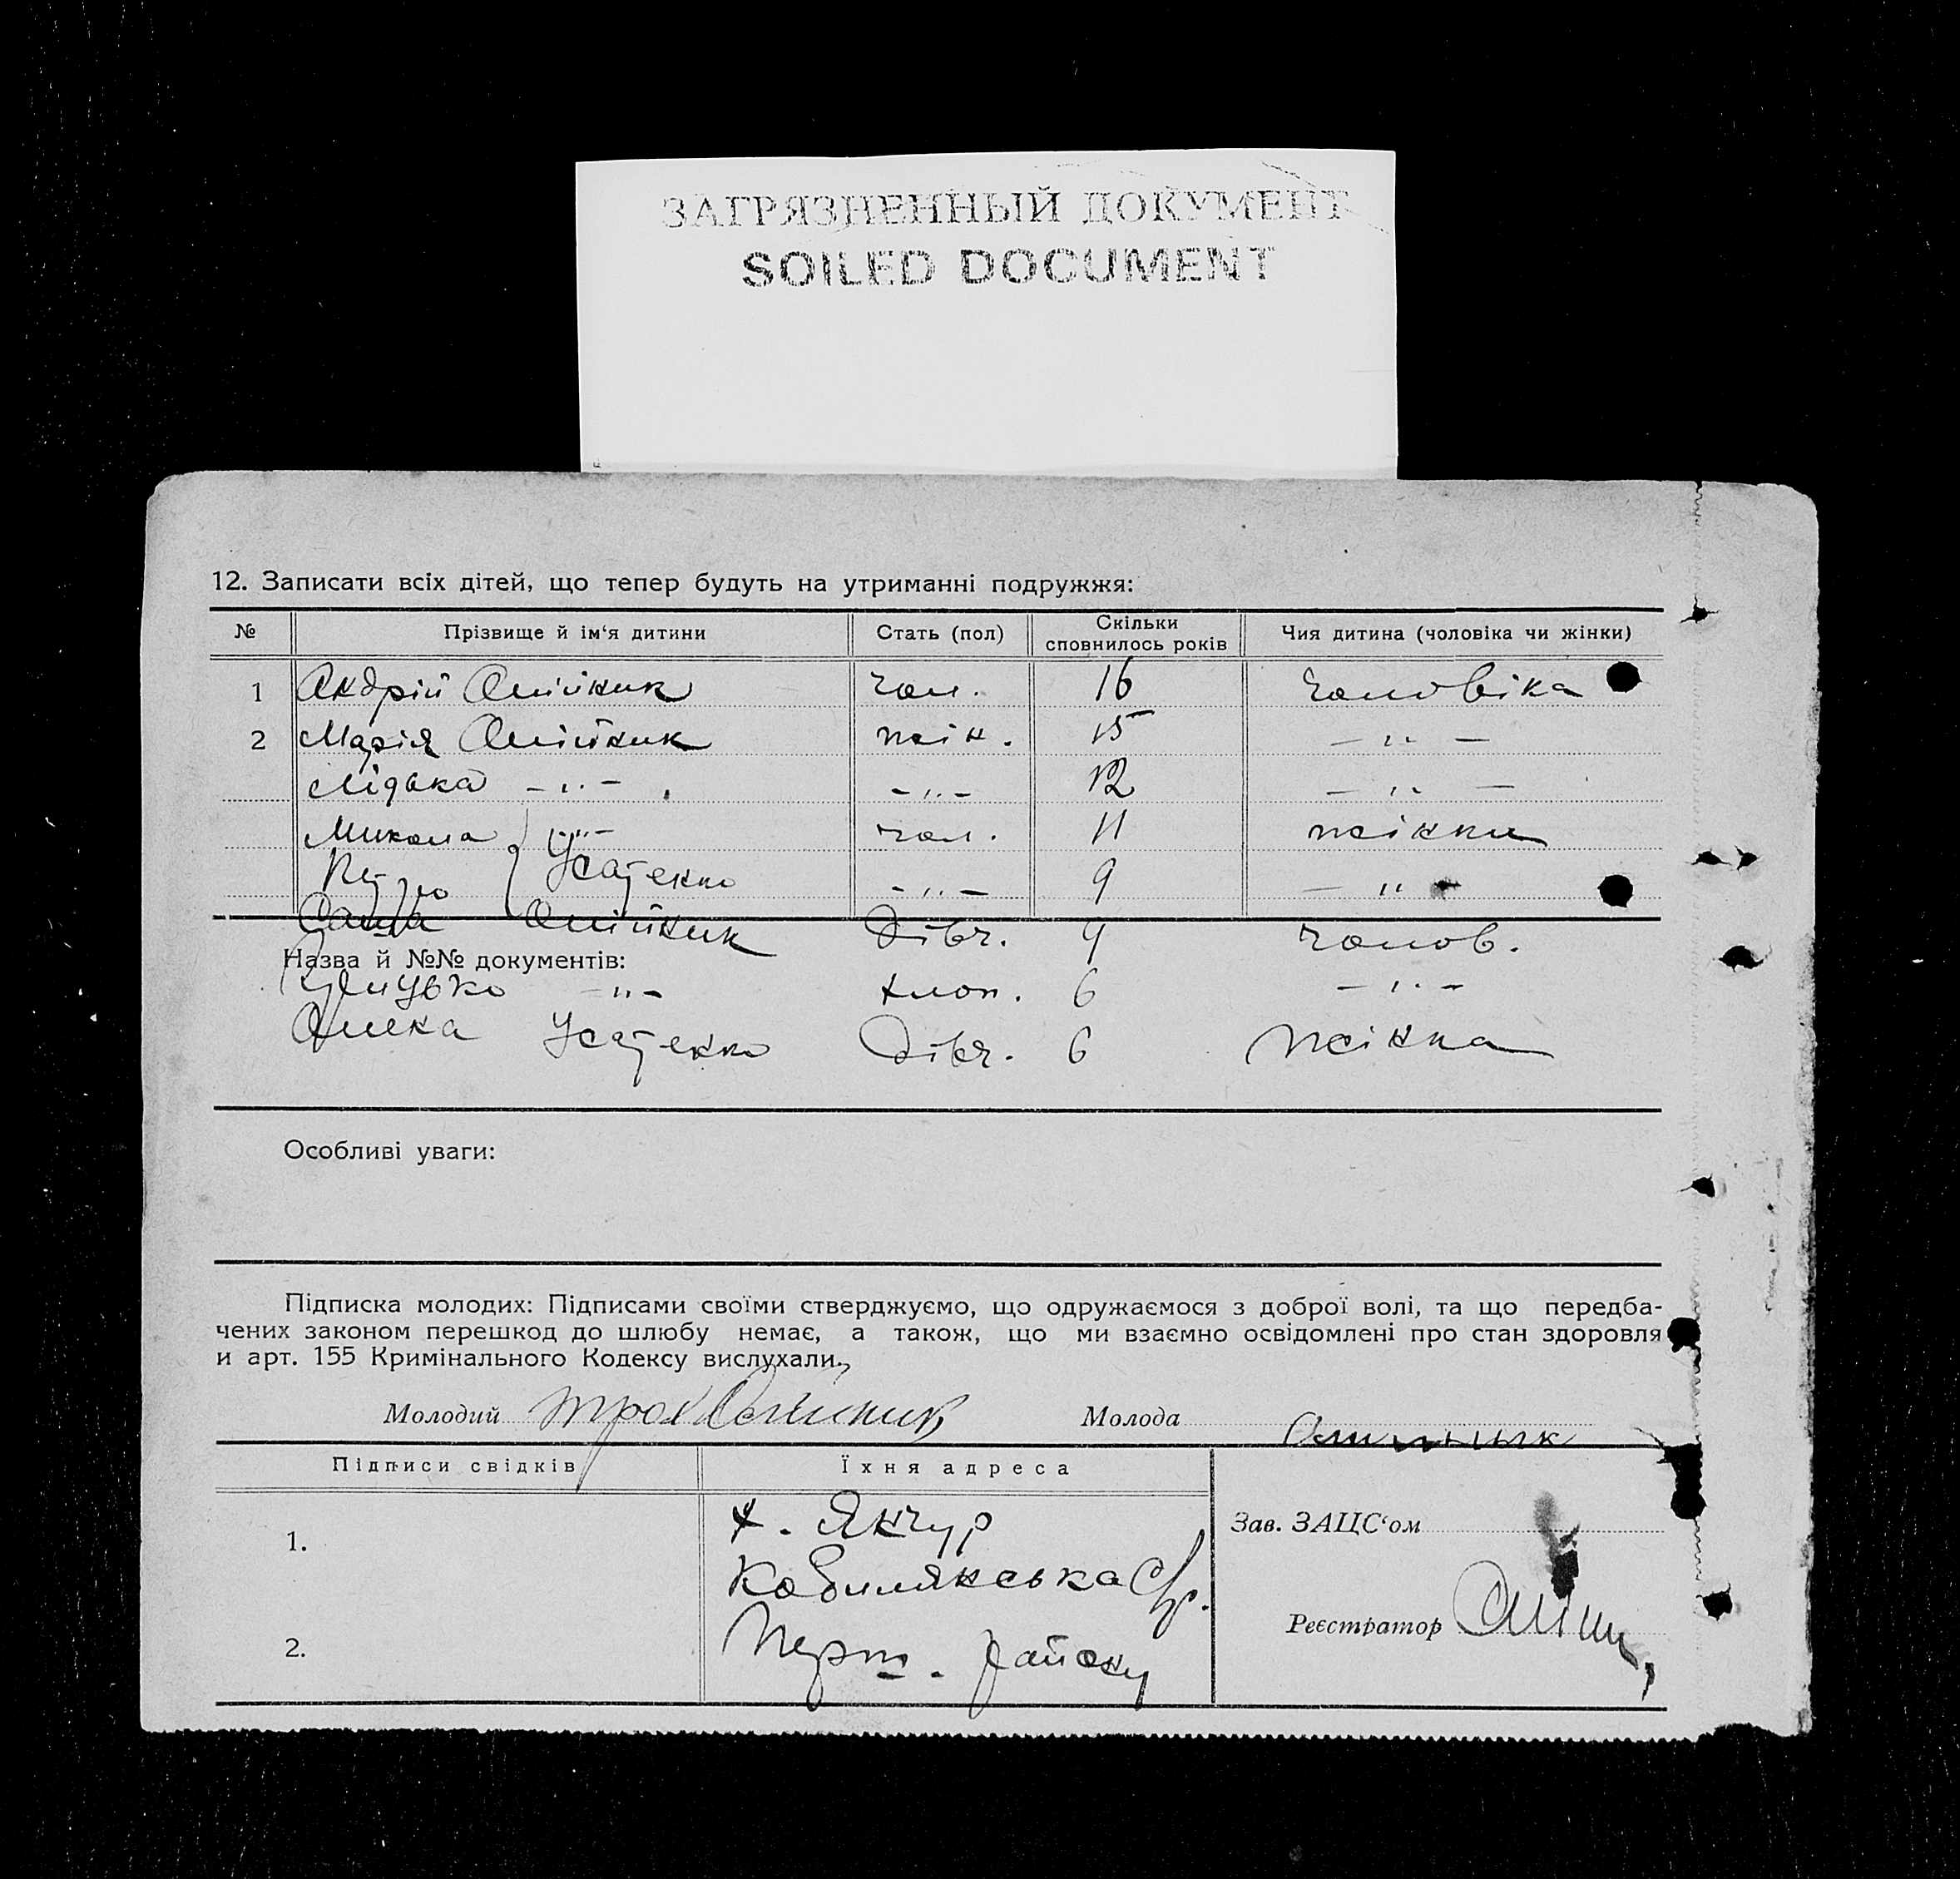 ЗАГРЯЗНЕННЫЙ ДОКУМЕНТ
SOILED DOCUMENT
12. Записати всіх дітей, що тепер будуть на утриманні подружжя:
№ Прізвище й ім'я дитини Стать (пол) Скільки сповнилось років Чия дитина (чоловіка чи жінки)
1 Андрій Олійник чол. 16 чоловіка
2 Марія Олійник жін. 15 — „ —
Лідька — „ — — „ — 12 — „ —
Микола — „ — чол. 11 жінки
Петро Усатенко — „ — 9 — „
Саша Олійник Дівч. 9 чолов.
Назва й №№ документів:
— „ — хлоп. 6 — „ —
Олека Усатенко Дівч. 6 жінка
Особливі уваги:
Підписка молодих: Підписами своїми стверджуємо, що одружаємося з доброї волі, та що передба-
чених законом перешкод до шлюбу немає, а також, що ми взаємно освідомлені про стан здоровля
и арт. 155 Кримінального Кодексу вислухали.
Молодий Молода Олійник
Підписи свідків Їхня адреса
х. Янчур
Зав. ЗАЦС'ом
1.
Кобилякська С/р.
Реєстратор
2.